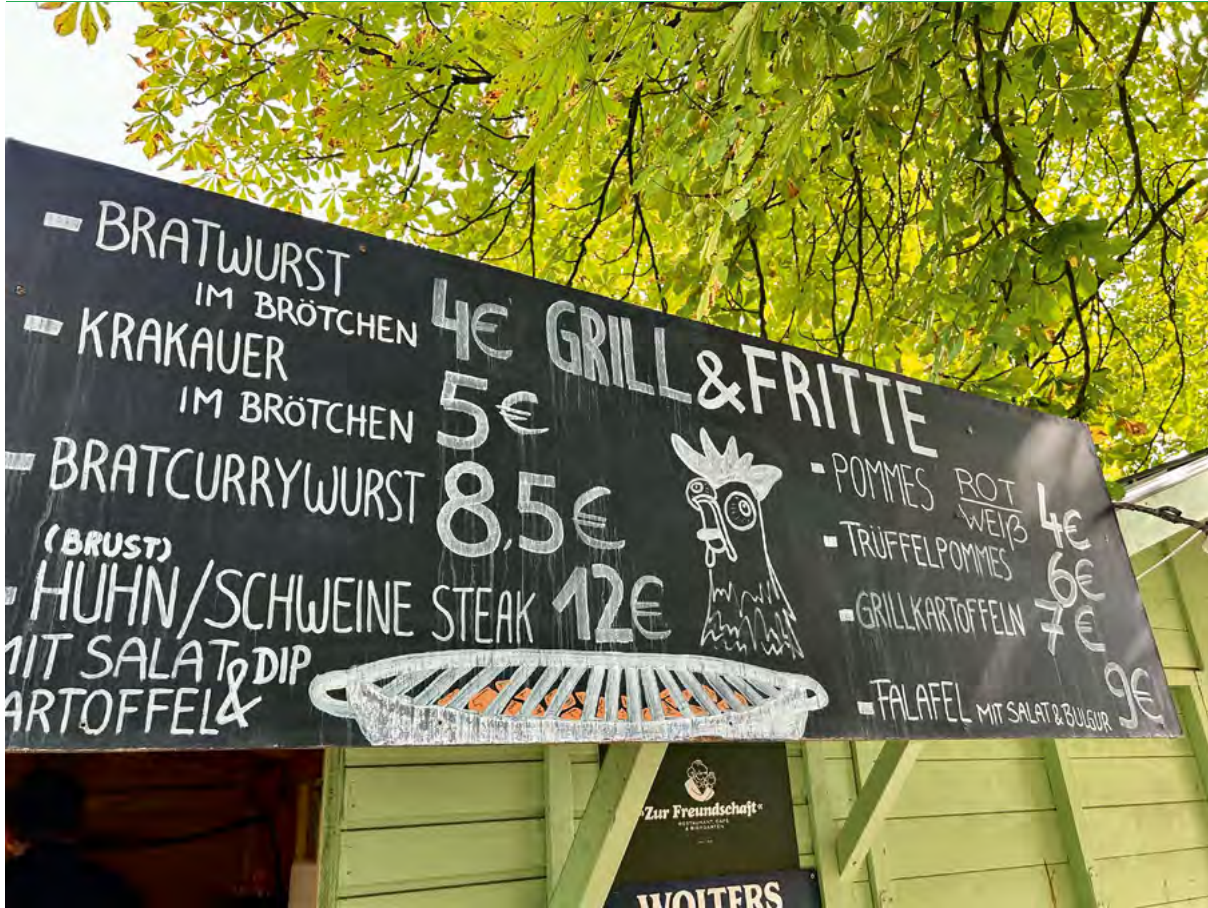 - BRATWURST
IM BRÖTCHEN 4€
- KRAKAUER
IM BRÖTCHEN 5€
- BRATCURRYWURST 8,5€
(BRUST)
- HUHN/SCHWEINE STEAK 12€
MIT SALAT & DIP
KARTOFFEL &
GRILL & FRITTE
- POMMES ROT
WEIß 4€
- TRÜFFELPOMMES 6€
- GRILLKARTOFFELN 7€
- FALAFEL MIT SALAT & BULGUR 9€
"Zur Freundschaft"
RESTAURANT, CAFE
& BIERGARTEN
WOLTERS